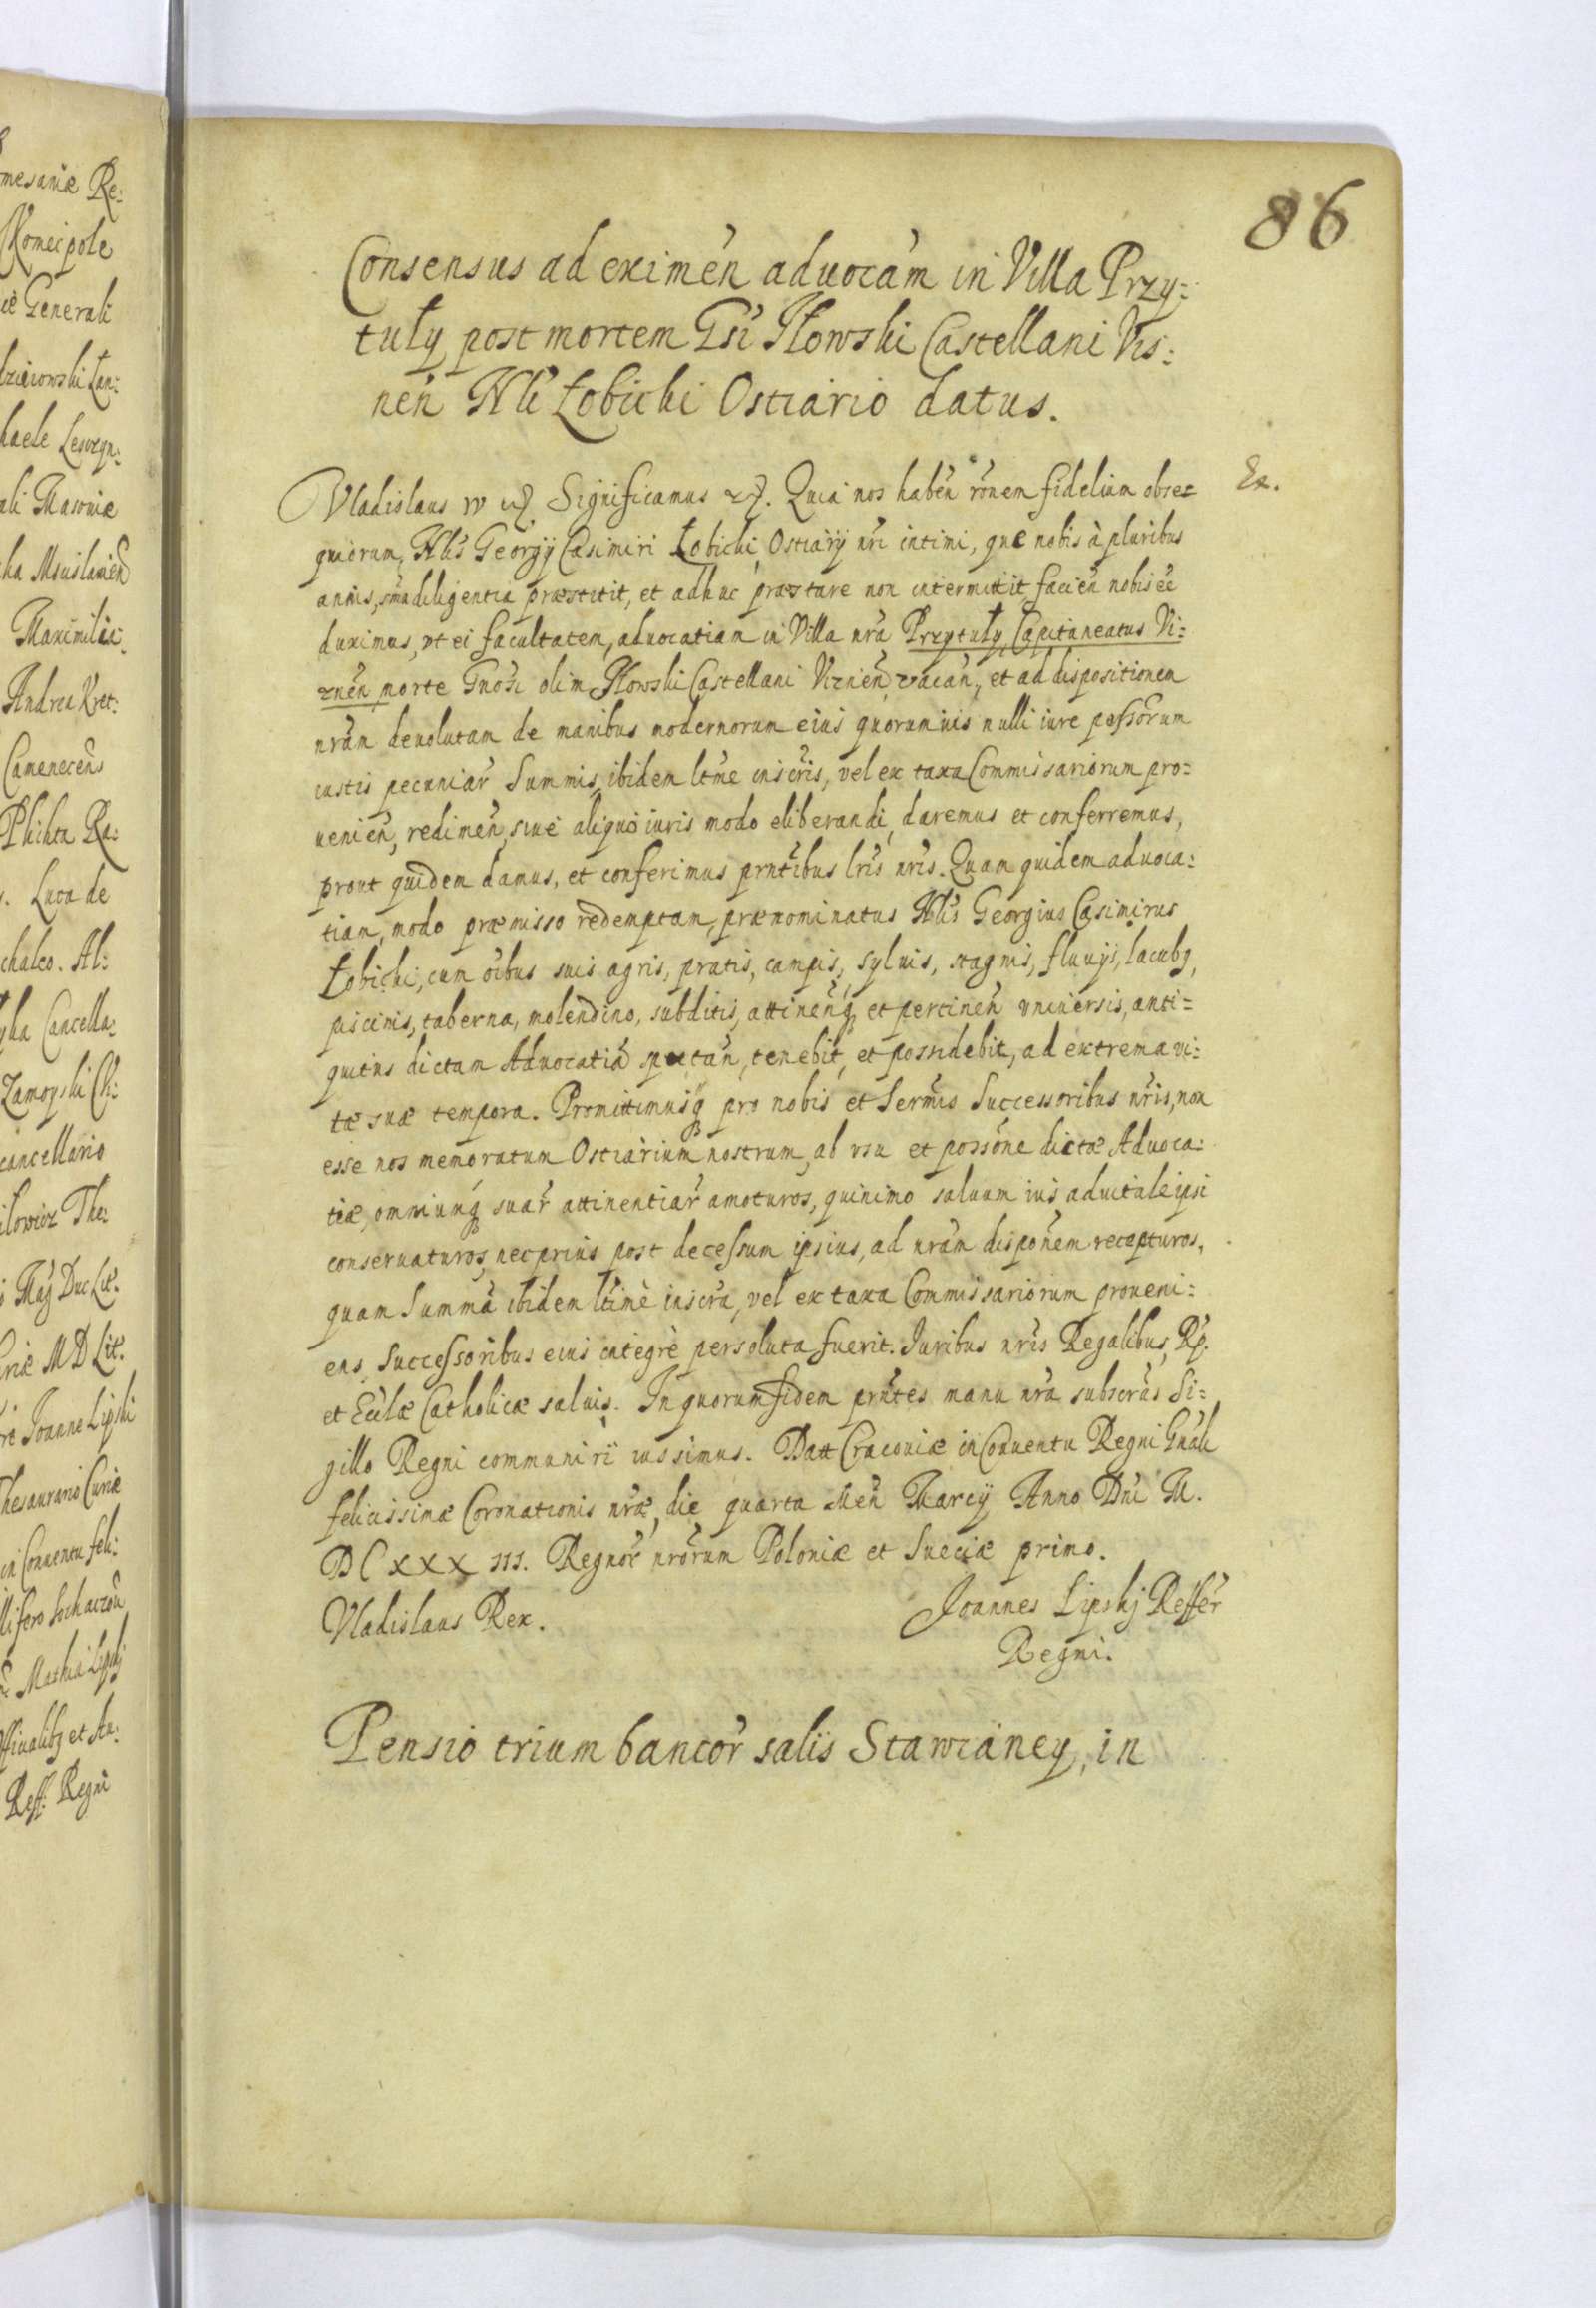 86
Consensus ad eximen̄ aduocām in Villa Przy:
tuły post mortem Gsi Iłowski Castellani Vis:
nen̄ Nłi Łobicki Ostiario datus.
Ex.
Vladislaus IV Significamus. Quia nos haben̄ rōnem fidelium obse=
quiorum, Nłis Georgij Casimiri Łobicki Ostiarij nr̄i intimi, que nobis à pluribus
annis, sm̄a diligentia præstitit, et adhuc præstare non intermittit, facien̄ nobis ēē
duximus, vt ei facultatem, aduocatiam in Villa nr̄a Przytuły Capitaneatus Vi:
znen̄ morte Gnōsi olim Iłowski Castellani Viznen̄ vacan̄, et ad dispositionem
nr̄am deuolutam de manibus modernorum eius quorumuis nulli iure possōrum
iustis pecuniar̄ Summis, ibidem ltm̄e inscr̄is, vel ex taxa Commissariorum pro=
uenien̄, redimen̄, siue aliquo iuris modo eliberandi, daremus et conferremus,
prout quidem damus, et conferimus prn̄tibus lr̄is nr̄is. Quam quidem aduoca:
tiam, modo præmisso redemptam, prænominatus Nłis Georgius Casimirus
Łobicki, cum ōibus suis agris, pratis, campis, syluis, stagnis, fluuijs, lacubq,
piscinis, taberna, molendino, subditis, attinen̄q et pertinen̄ vniuersis, anti=
quitus dictam Aduocatiā spectan̄, tenebit, et possidebit, ad extrema vi:
tæ suæ tempora. Promittimusq pro nobis et Serm̄is Successoribus nr̄is, non
esse nos memoratum Ostiarium nostrum, ab vsu et possōne dictæ Aduoca:
tiæ, omniumq suar̄ attinentiar̄ amoturos, quinimo saluum ius aduitale ipsi
conseruaturos, nec prius post decessum ipsius, ad nr̄am dispōnem recepturos,
quam Summā ibidem ltīmè inscr̄a, vel ex taxa Commissariorum proueni:
ens Successoribus eius integrè persoluta fuerit. Iuribus nr̄is Regalibus, Rp.
et Ecclæ Catholicæ saluis. In quorum fidem prn̄tes manu nr̄a subscr̄as Si=
gillo Regni communiri iussimus. Datt Cracouiæ in Conuentu Regni Gnāli
felicissimæ Coronationis nr̄æ, die quarta Men̄ Marcij Anno Dn̄i M.
DCXXXIII. Regnor̄ nr̄orum Poloniæ et Sueciæ primo.
Vladislaus Rex.
Joannes Lipskj Reffer̄
Regni.
Pensio trium bancor̄ salis Stawianey, in